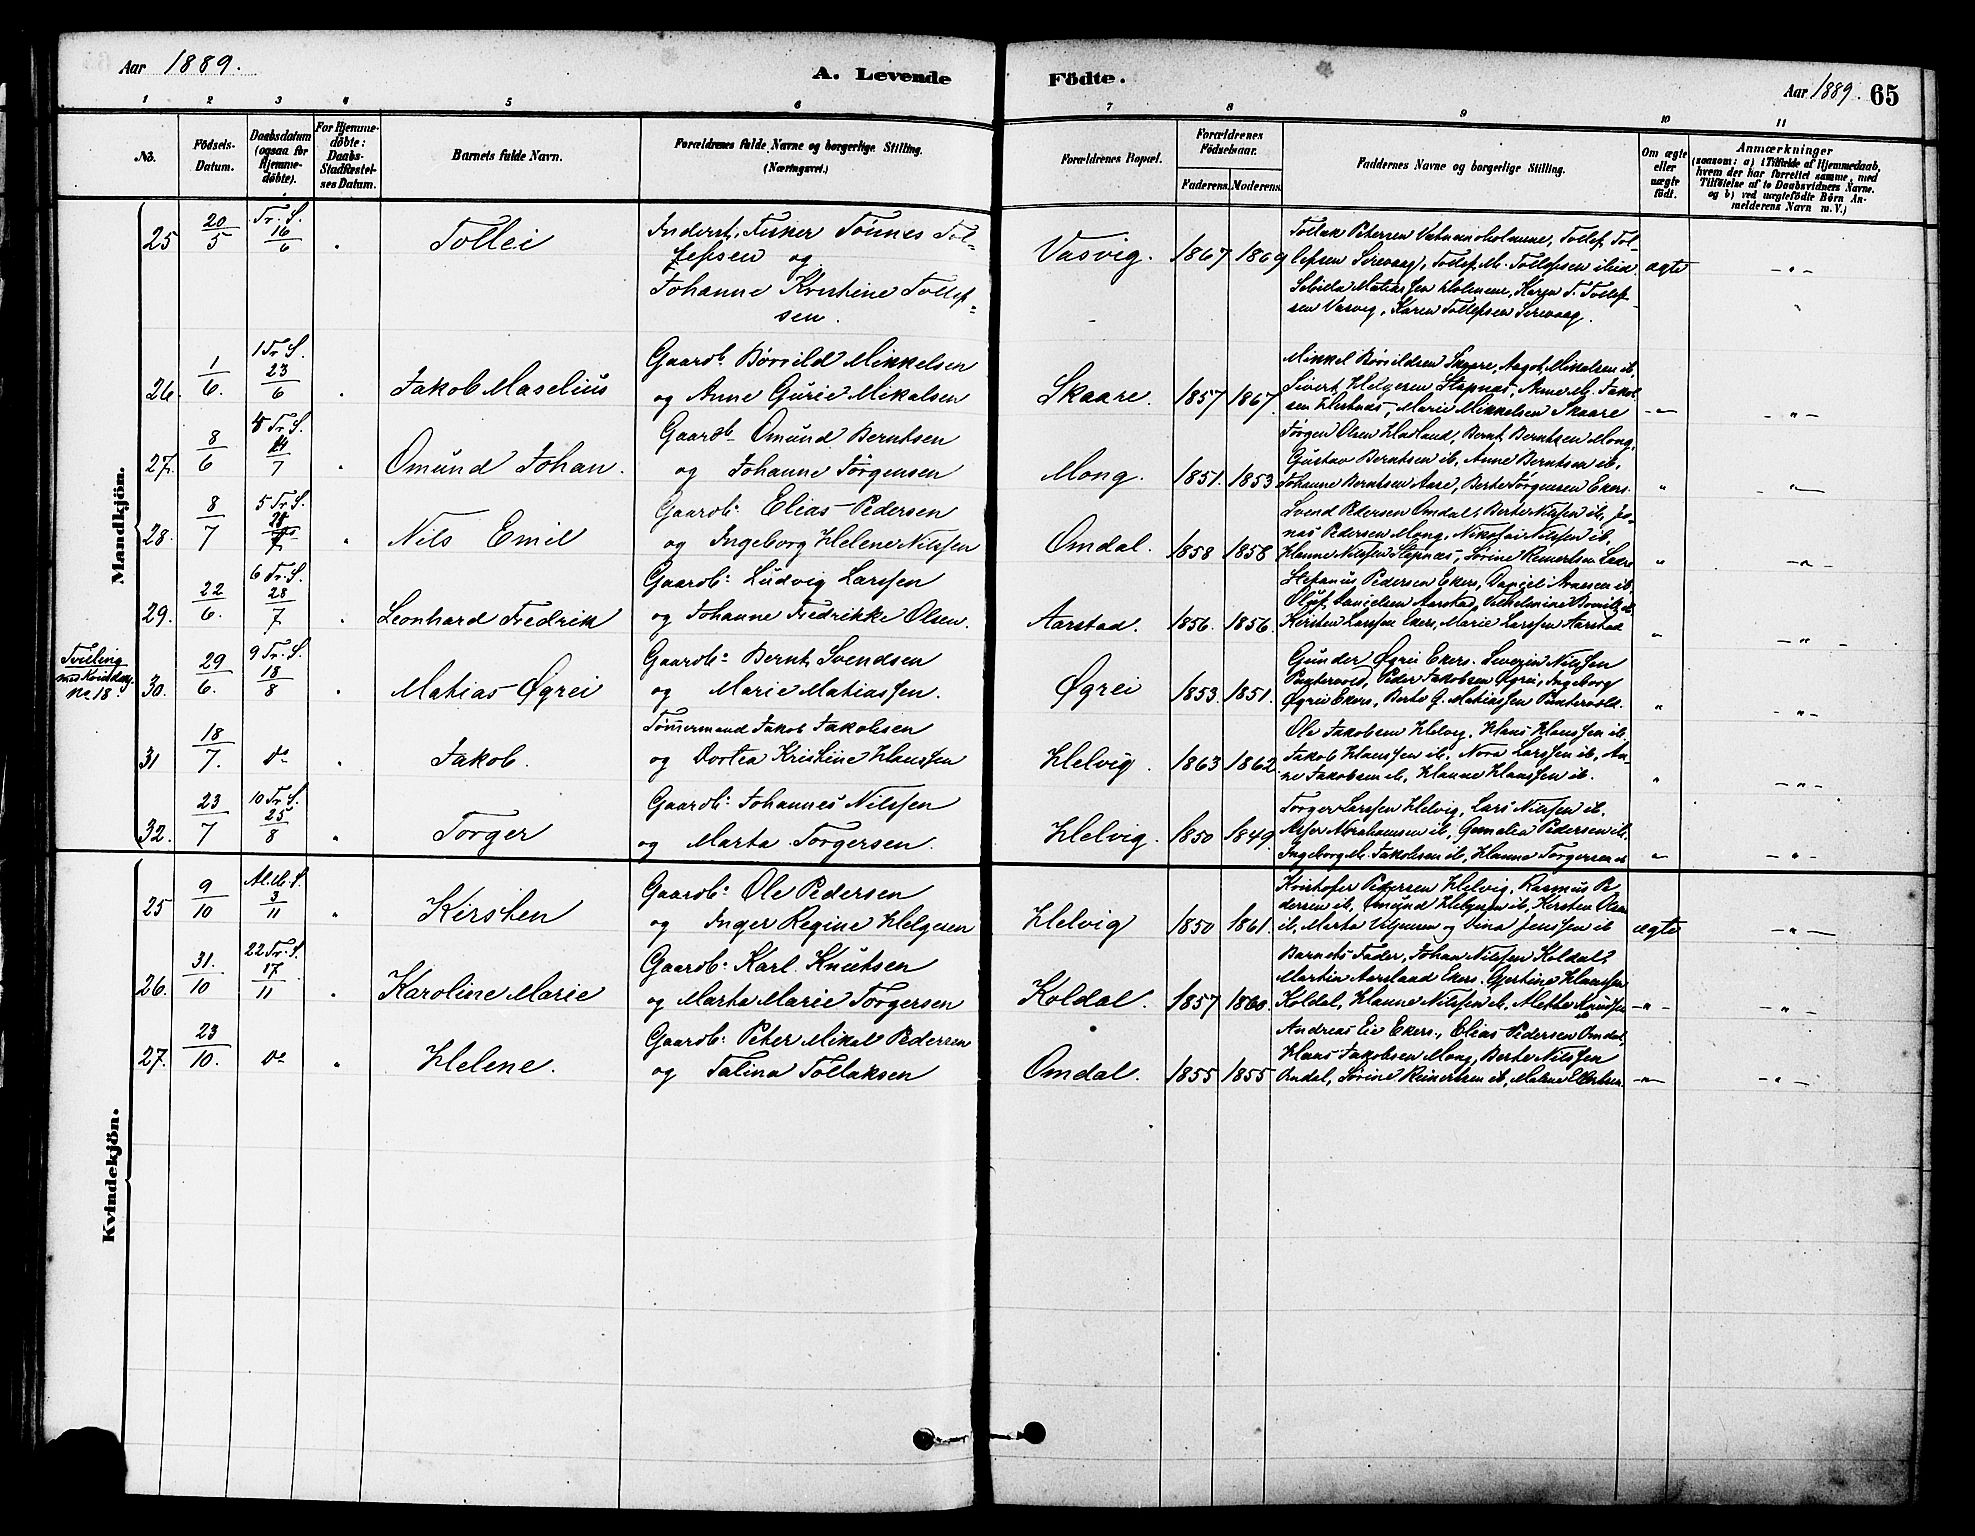 Aar 1889.
A. Levende Födte.
Aar 1889. 65
1 2 3 4 5 6 7 8 9 10 11
No.
Födsels-Datum.
Daabsdatum (ogsaa for Hjemmedöbte).
For Hjemmedöbte: Daabs-Stadfæstelses Datum.
Barnets fulde Navn.
Forældrenes fulde Navne og borgerlige Stilling. (Næringsvei.)
Forældrenes Bopæl.
Forældrenes Födselsaar.
Faderens. Moderens.
Faddernes Navne og borgerlige Stilling.
Om ægte eller uægte födt.
Anmærkninger
(saasom: a) i Tilfælde af Hjemmedaab, hvem der har forrettet samme, med Tilföielse af to Daabsvidners Navne. og b) ved uægtefödte Börn Anmelderens Navn m. V.)
Mandkjön.
25 20/5 Tr. S. 16/6 " Tollei
Inderst, Fisker Tönnes Tol-
lefsen og
Johanne Kristine Tollef-
sen.
Vasvig. 1867 1869
Tollak Petersen Vatnemoholmene, Tollef Tol-
lefsen Sirevaag, Tollef M. Tollefsen
Matiassen Holmene, Karen T. Tollef-
sen Vasvig, Karen Tollefsen Sirevaag.
ægte - " -
26. 1/6. 1 Tr. S. 23/6 " Jakob Maselius
Gaardb. Börrild Mikkelsen
og Anne Gurie Mikalsen
Skaare. 1857 1867.
Mikkel Börrildsen Skaare, Aagot Mikalsen ib.
Sivert Helgesen Stapnæs, Anne M. Jakob-
sen Hestnæs, Marie Mikkelsen Skaare
- " - - " -
27. 8/6 4 Tr. S. 14/7 " Omund Johan.
Gaardb. Omund Berntsen
og Johanne Jörgensen
Mong. 1851. 1853
Jörgen Olsen Hadland, Bernt Berntsen Mong,
Gustav Berntsen ib, Anne Berntsen ib,
Johanne Berntsen Aase, Berte Jörgensen Ekers.
" - " -
28. 8/7 5 Tr. S. /7 " Nils Emil
Gaardb: Elias Pedersen
og Ingeborg Helene Nilssen
Omdal. 1858 1858
Svend Pedersen Omdal, Berte Nilssen ib, Jo-
nas Pedersen Mong, Nikolai Nilssen ib,
Hanne Nilssen Stapnæs, Sörine Reinertsen
" - " -
29. 22/6. 6 Tr. S. 28/7 " Leonhard Fredrik
Gaardb: Ludvig Larssen
og Johanne Fredrikke Olsen.
Aarstad. 1856. 1856.
Stefanus Pedersen Ekers, Daniel Aasen ib
Oluf Danielsen Aarstad, Vilhelmine
Kirsten Larssen Ekers, Marie Larssen Aarstad
" - " -
Tvilling
med Kvindekj.
No 18.
30. 29/6. 9 Tr. S. 18/8 " Matias Øgrei
Gaardb: Bernt Svendsen
og Marie Matiassen.
Øgrei 1853. 1851.
Gunder Øgrei Ekers. Severin Nilssen
Puntervold, Peder Jakobsen Øgrei, Ingeborg
Øgrei Ekers, Berte G. Matiassen Puntervold.
" - " -
31 18/7. do " Jakob.
Tömmermand Jakob Jakobsen
og Dortea Kristine Hanssen
Helvig 1863 1862
Ole Jakobsen Helvig, Hans Hanssen ib.
Jakob Hanssen ib, Nora Larssen ib, An-
ne Jakobsen ib, Hanne Hanssen ib.
" - " -
32. 23/7 10 Tr. S. 25/8 " Torger
Gaardb: Johannes Nilssen
og Marta Torgersen.
Helvig. 1850 1849.
Torger Larssen Helvig, Lars Nilssen ib.
Asser Abrahamsen ib, Gemalia Pedersen ib,
Ingeborg M. Jakobsen ib, Hanna Torgersen ib
- " - - " -
Kvindekjön.
25 9/10 Al. H. S. 3/11 " Kirsten
Gaardb: Ole Pedersen
og Inger Regine Helgesen
Helvig 1850 1861.
Kristofer Pedersen Helvig, Rasmus Pe-
dersen ib, Omund Helgesen ib, Kirsten Olsen
ib, Marta og Dina Jenssen ib
ægte - " -
26. 31./10 22 Tr. S. 17/11 " Karoline Marie
Gaardb: Karl Knutsen
og Marta Marie Torgersen
Koldal. 1857 1860.
Barnets Fader, Johan Nilssen Koldal,
Martin Aarstaad Ekers. Gjertine Hanssen
Koldal, Hanne Nilssen ib, Alethe Knudsen
- " - "
27. 23/10. do " Helene.
Gaardb: Peter Mikal Pedersen
og Talina Tollaksen
Omdal. 1855 1855
Andreas Eie Ekers., Elias Pedersen Omdal,
Hans Jakobsen Mong, Berte Nilssen
Omdal, Sörine Reinertsen ib, Malene
- " - - " -